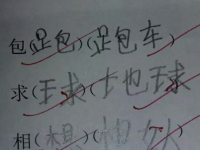 包(跑)(跑车
求(球)(地球
相(想)(相